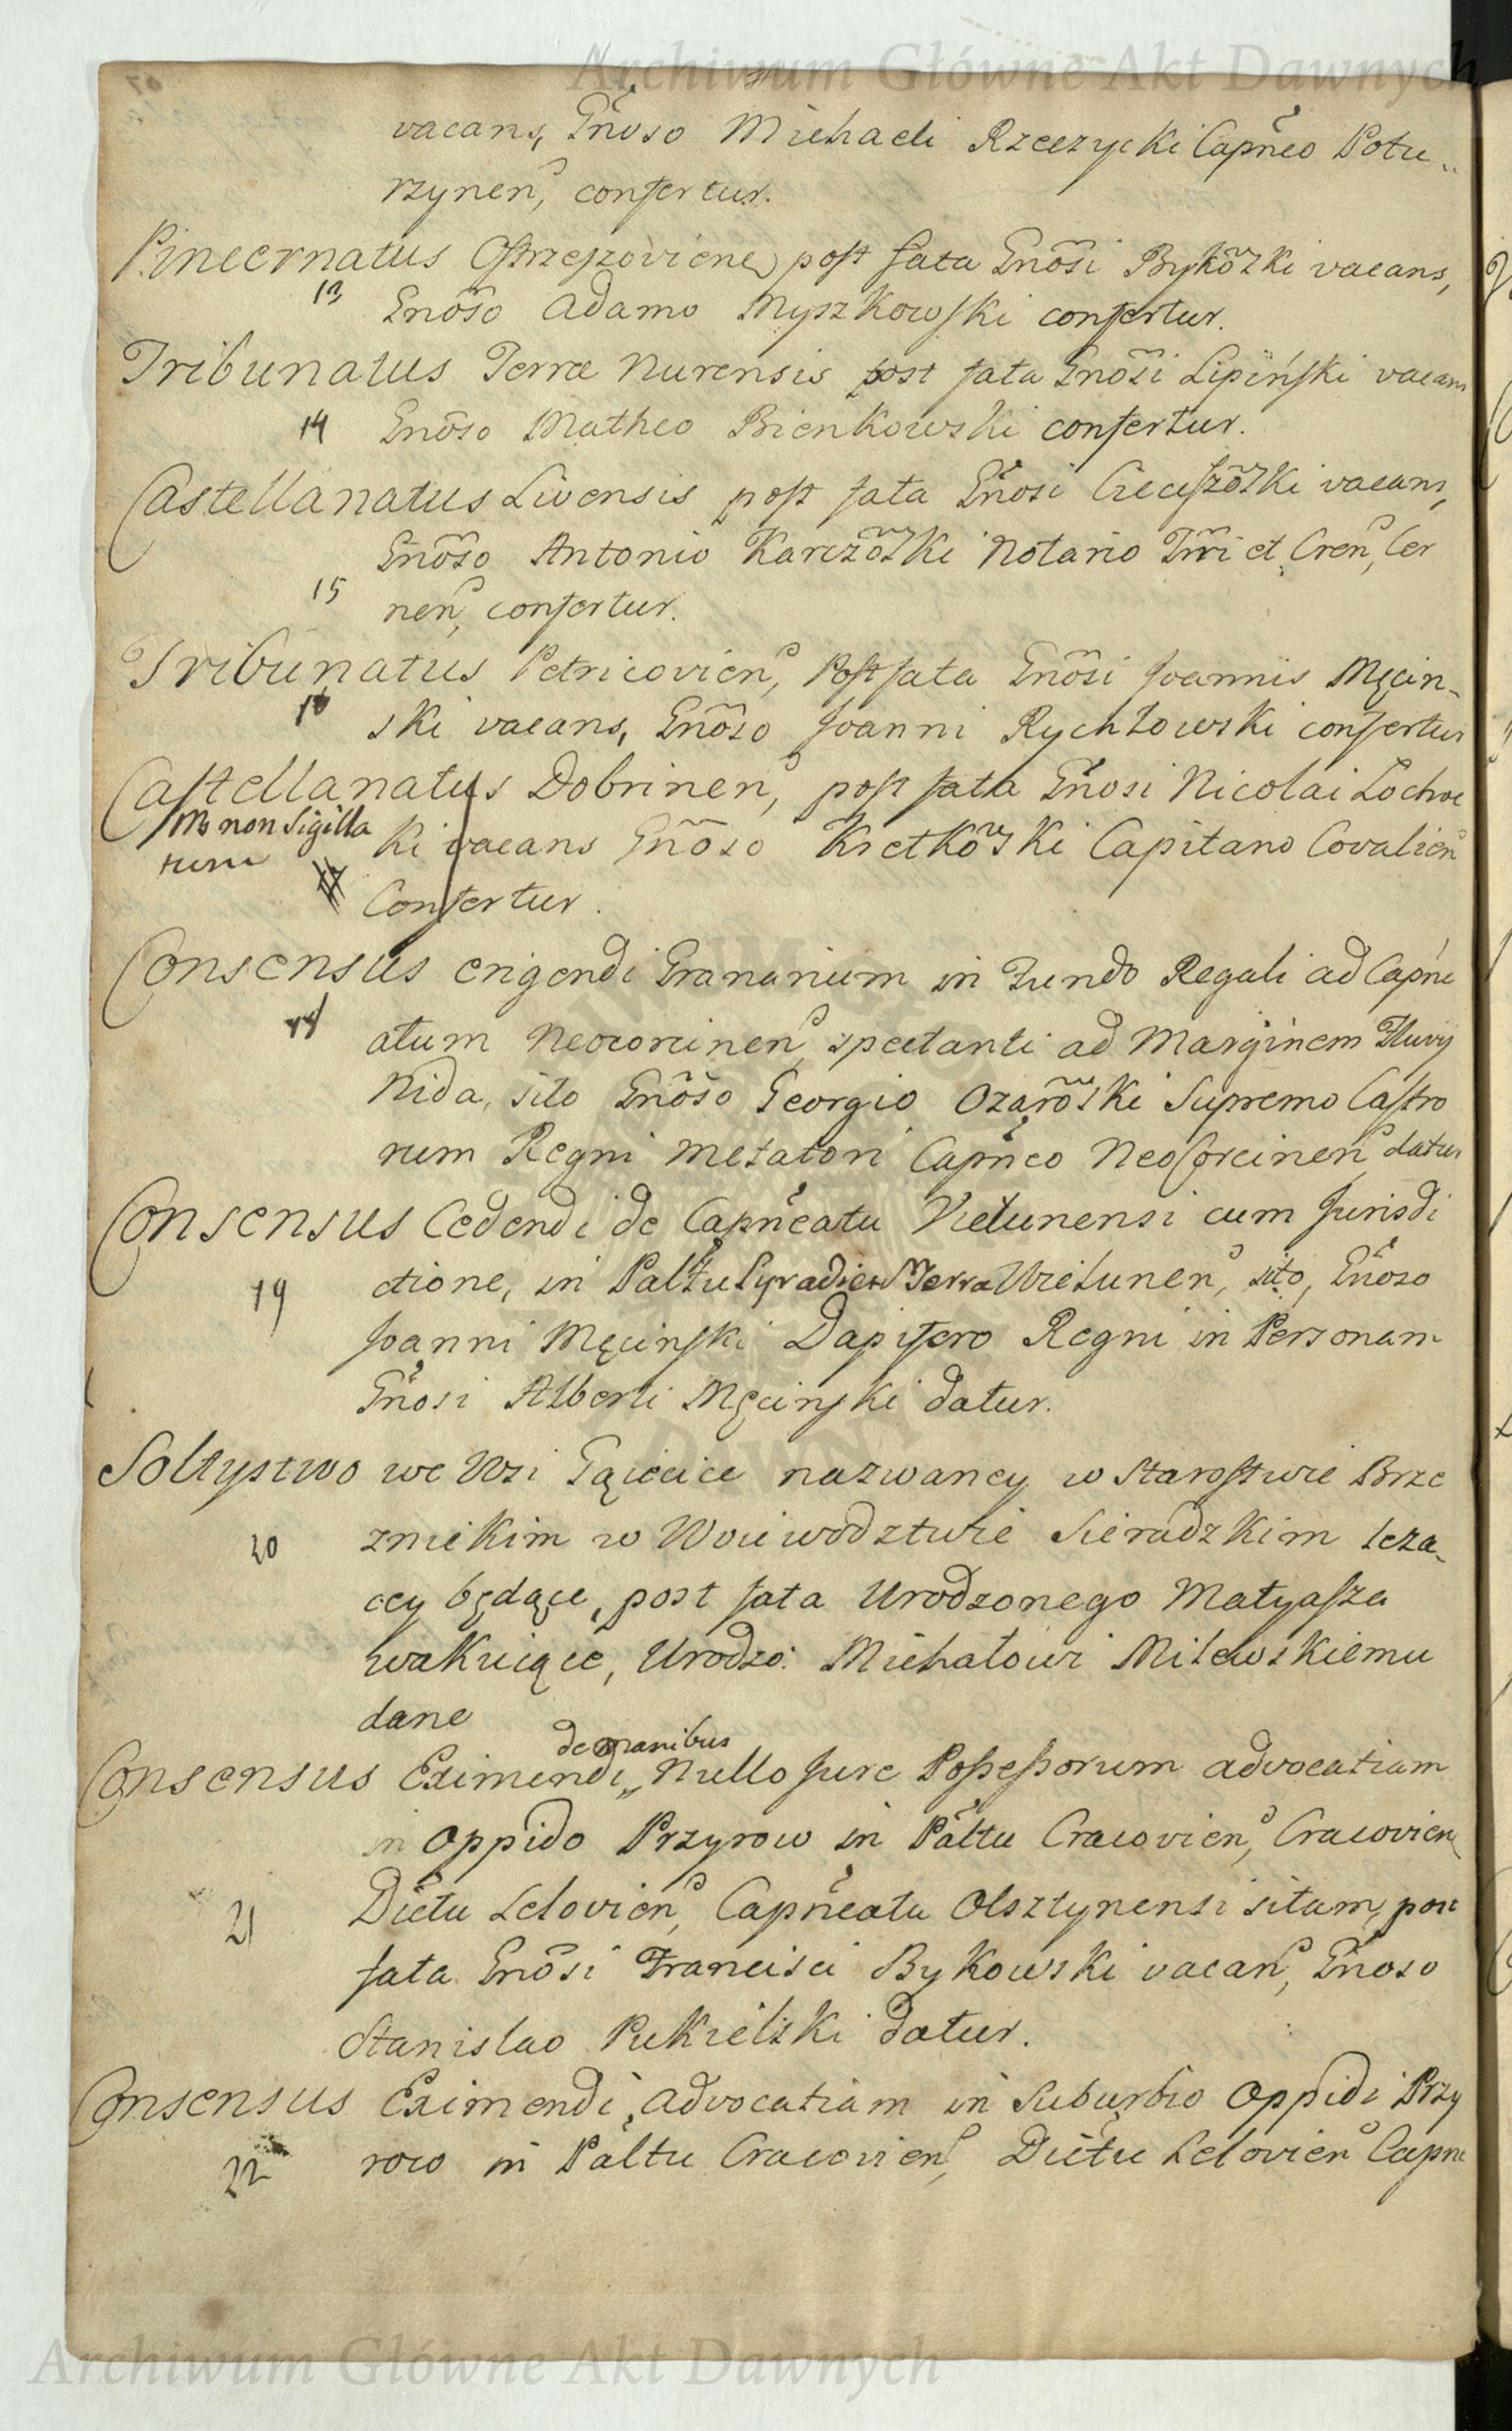 Archiwum Główne Akt Dawnych
vacans, Gnoso Michaeli Rzeczycki Capneo Potu-
rzynen, confertur.
Pincernatus Ostrzeszoviene, post fata Gnosi Bykowzki vacans,
13 Gnoso Adamo Myszkowski confertur.
Tribunatus Terræ Nurensis post fata Gnosi Lipiński vacans
14 Gnoso Matheo Bienkowski confertur.
Castellanatus Livensis post fata Gnosi Cieciszowski vacans,
Gnoso Antonio Karczowski Notario Trri et Cren, Cer
15 nen, confertur.
Tribunatus Petricovien, Post fata Gnosi Joannis Męcin-
ski vacans, Gnoso Joanni Rychłowski confertur
Castellanatus Dobrinen, post fata Gnosi Nicolai Zochoc
Mo non Sigilla ki vacans Gnoso Kretkowski Capitano Covalien
tum Confertur.
Consensus erigendi Granarium in Fundo Regali ad Capne
18 atum Neocorcinen, spectanti ad Marginem Fluvij
Nida, sito Gnoso Georgio Ozarowski Supremo Castro
rum Regni Metatori Capneo NeoCorcinen datur
Consensus Cedendi de Capneatu Vielunensi cum Jurisdi
19 ctione, in Paltu Syradien Terra Wielunen, sito, Gnoso
Joanni Męcinski Dapifero Regni in Personam
Gnosi Alberti Męcinski datur.
Soltystwo we Wsi Gąiecice nazwaney w Starostwie Brze
20 znickim w Woiewodztwie Sieradzkim leza-
cey będące, post fata Urodzonego Matyasza
wakuiące, Urodzo: Michałowi Milewskiemu
dane
de manibus
Consensus Eximendi, Nullo Jure Possessorum advocatiam
in Oppido Przyrow in Paltu Cracovien, Cracovien
21 Dictu Lelovien, Capneatu Olsztynensi sitam, post
fata Gnosi Francisci Bykowski vacan, Gnoso
Stanislao Pukielski datur.
Consensus Eximendi, advocatiam in Suburbio Oppidi Przy
22 row in Paltu Cracovien, Dictu Lelovien Capne
Archiwum Główne Akt Dawnych